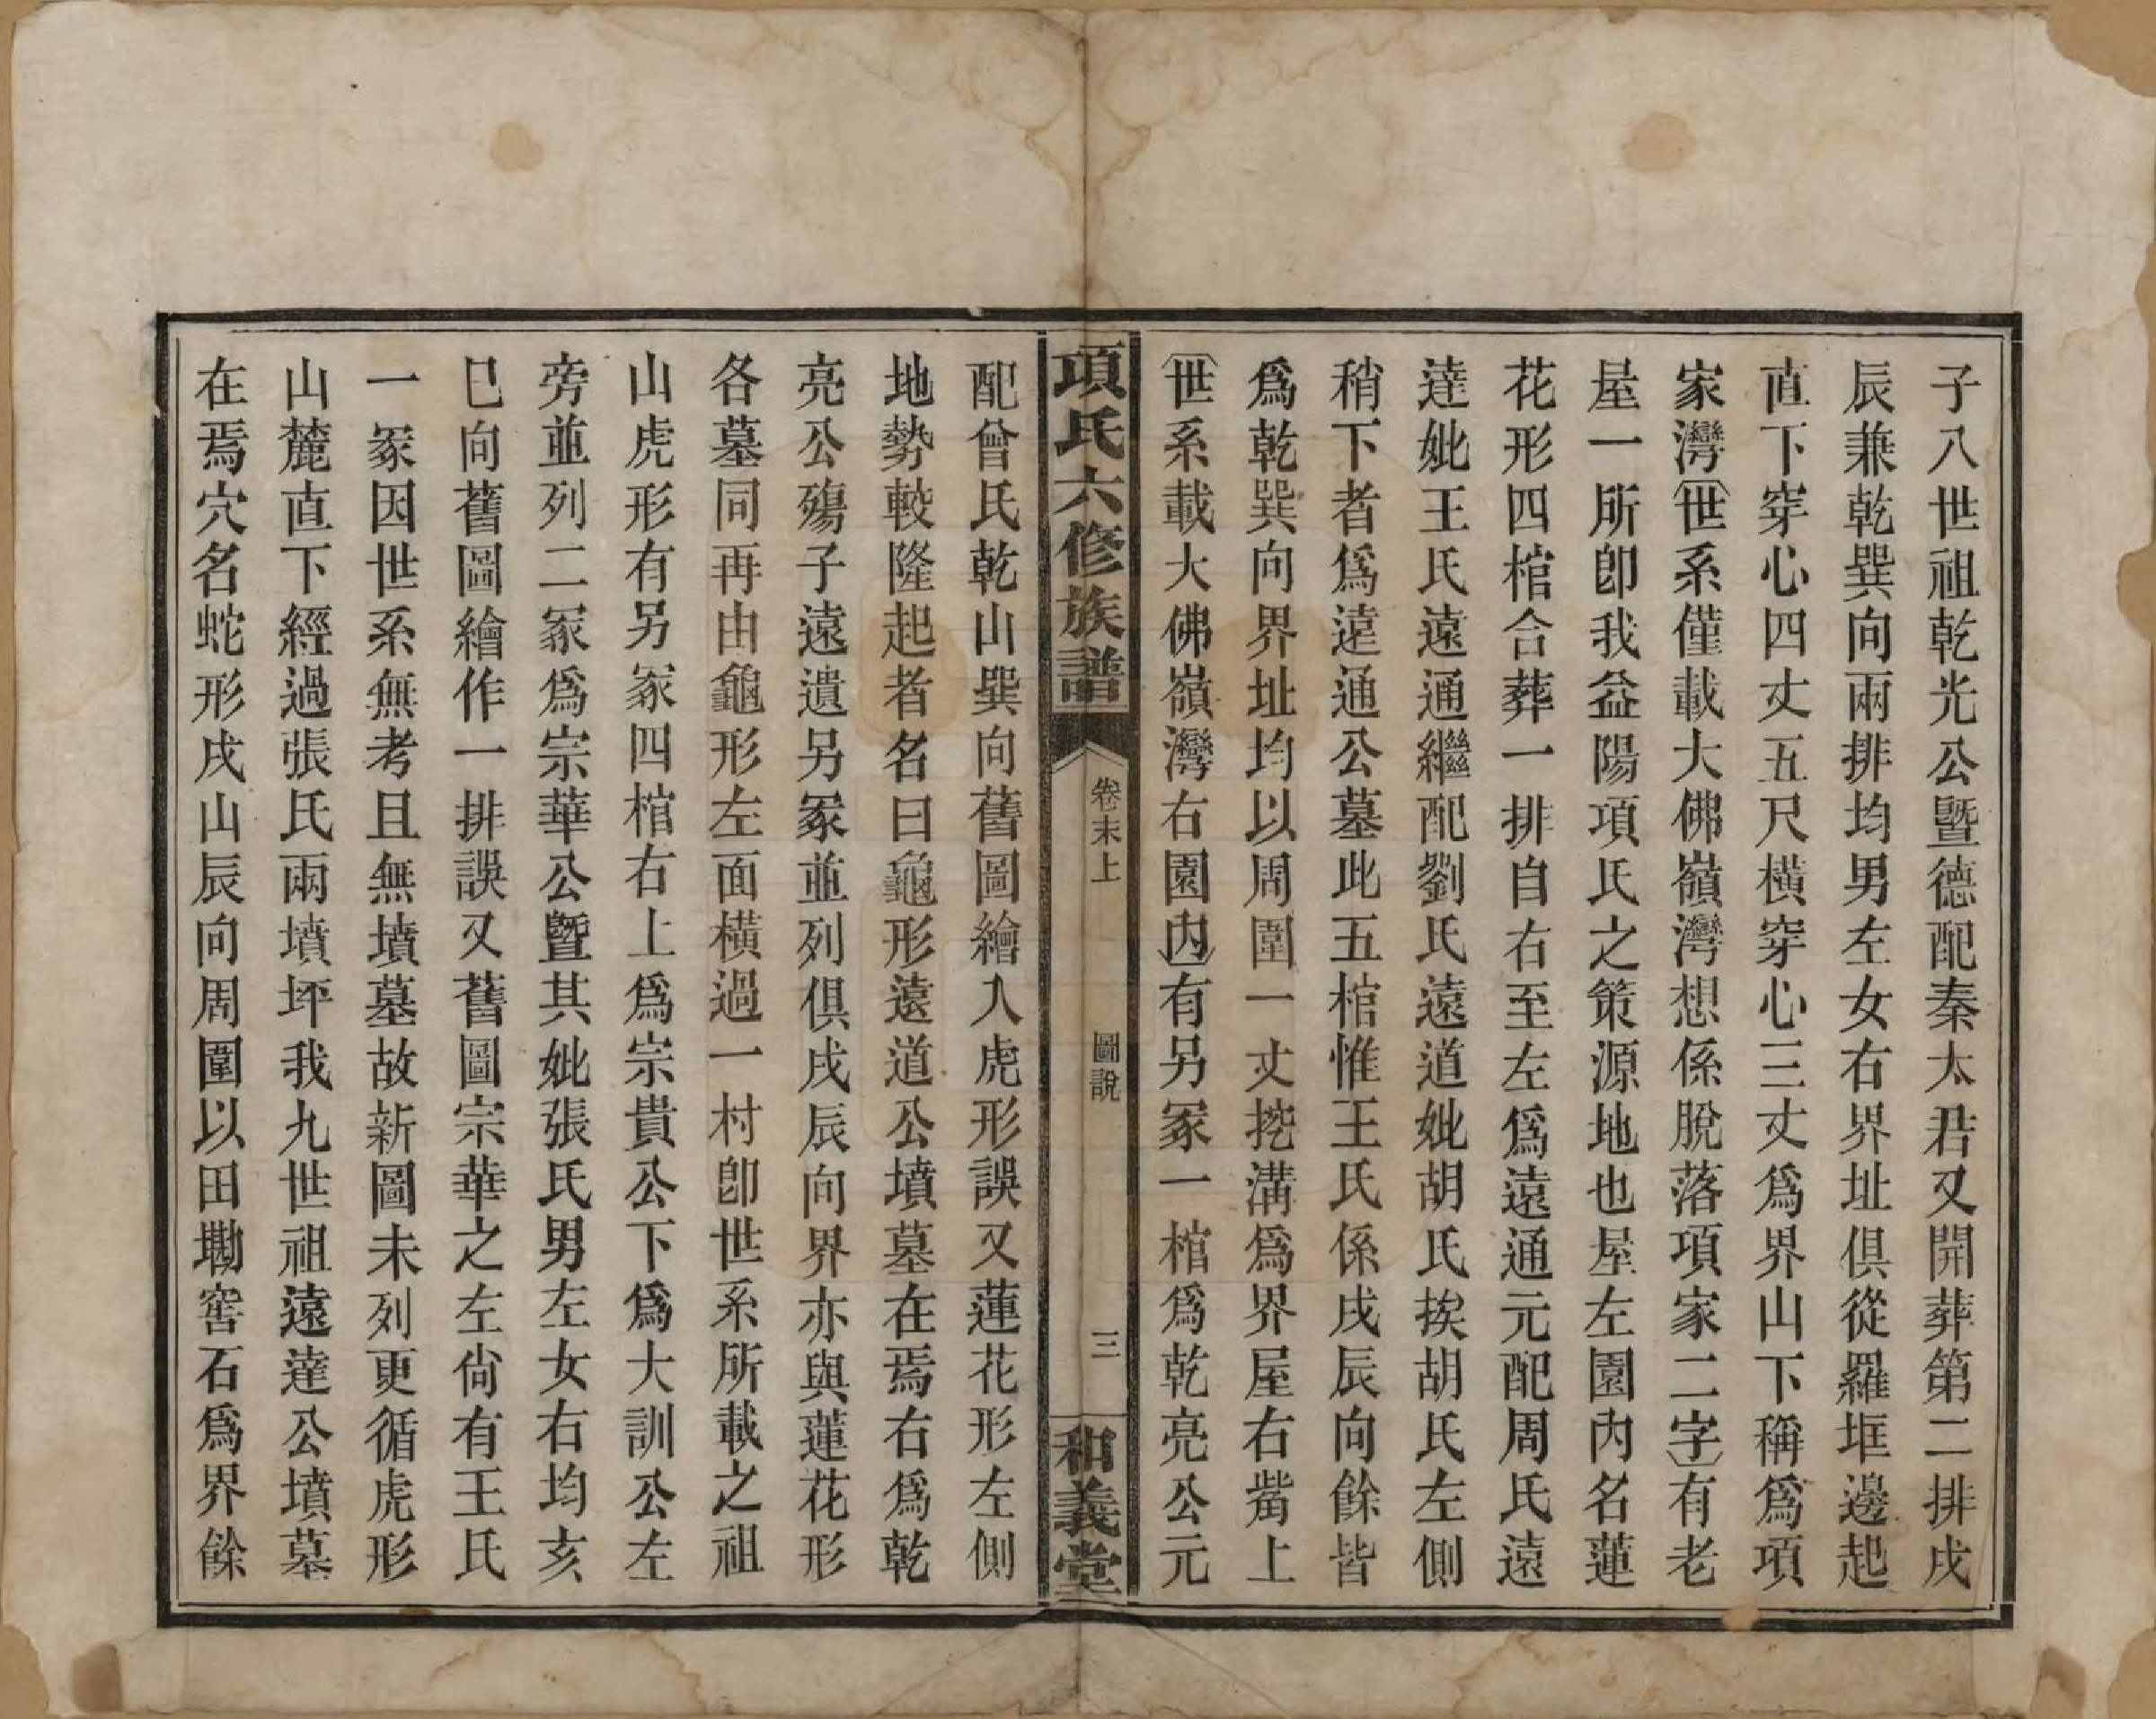 子八世祖乾光公暨德配秦太君又開葬第二排戌
辰兼乾巽向兩排均男左女右界址俱從羅框邊起
直下穿心四丈五尺橫穿心三丈爲界山下稱爲項
家灣(世系僅載大佛嶺灣想係脫落項家二字)有老
屋一所卽我益陽項氏之策源地也屋左園內名蓮
花形四棺合葬一排自右至左爲遠通元配周氏遠
達妣王氏遠通繼配劉氏遠道妣胡氏挨胡氏左側
稍下者爲遠通公墓此五棺惟王氏係戌辰向餘皆
爲乾巽向界址均以周圍一丈挖溝爲界屋右觜上
(世系載大佛嶺灣右園內)有另冢一棺爲乾亮公元
項氏六修族譜
卷末上
圖說
三
和義堂
配曾氏乾山巽向舊圖繪入虎形誤又蓮花形左側
地勢較隆起者名曰龜形遠道公墳墓在焉右爲乾
亮公殤子遠遺另冢並列俱戌辰向界亦與蓮花形
各墓同再由龜形左面橫過一村卽世系所載之祖
山虎形有另冢四棺右上爲宗貴公下爲大訓公左
旁並列二冢爲宗華公暨其妣張氏男左女右均亥
巳向舊圖繪作一排誤又舊圖宗華之左尙有王氏
一冢因世系無考且無墳墓故新圖未列更循虎形
山麓直下經過張氏兩墳坪我九世祖遠達公墳墓
在焉穴名蛇形戌山辰向周圍以田墈窖石爲界餘